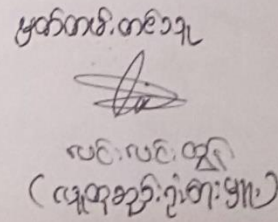 မှတ်တမ်းတင်သူ
လင်းလင်းထွန်း
(လူထုစည်းရုံးရေးမှူး)